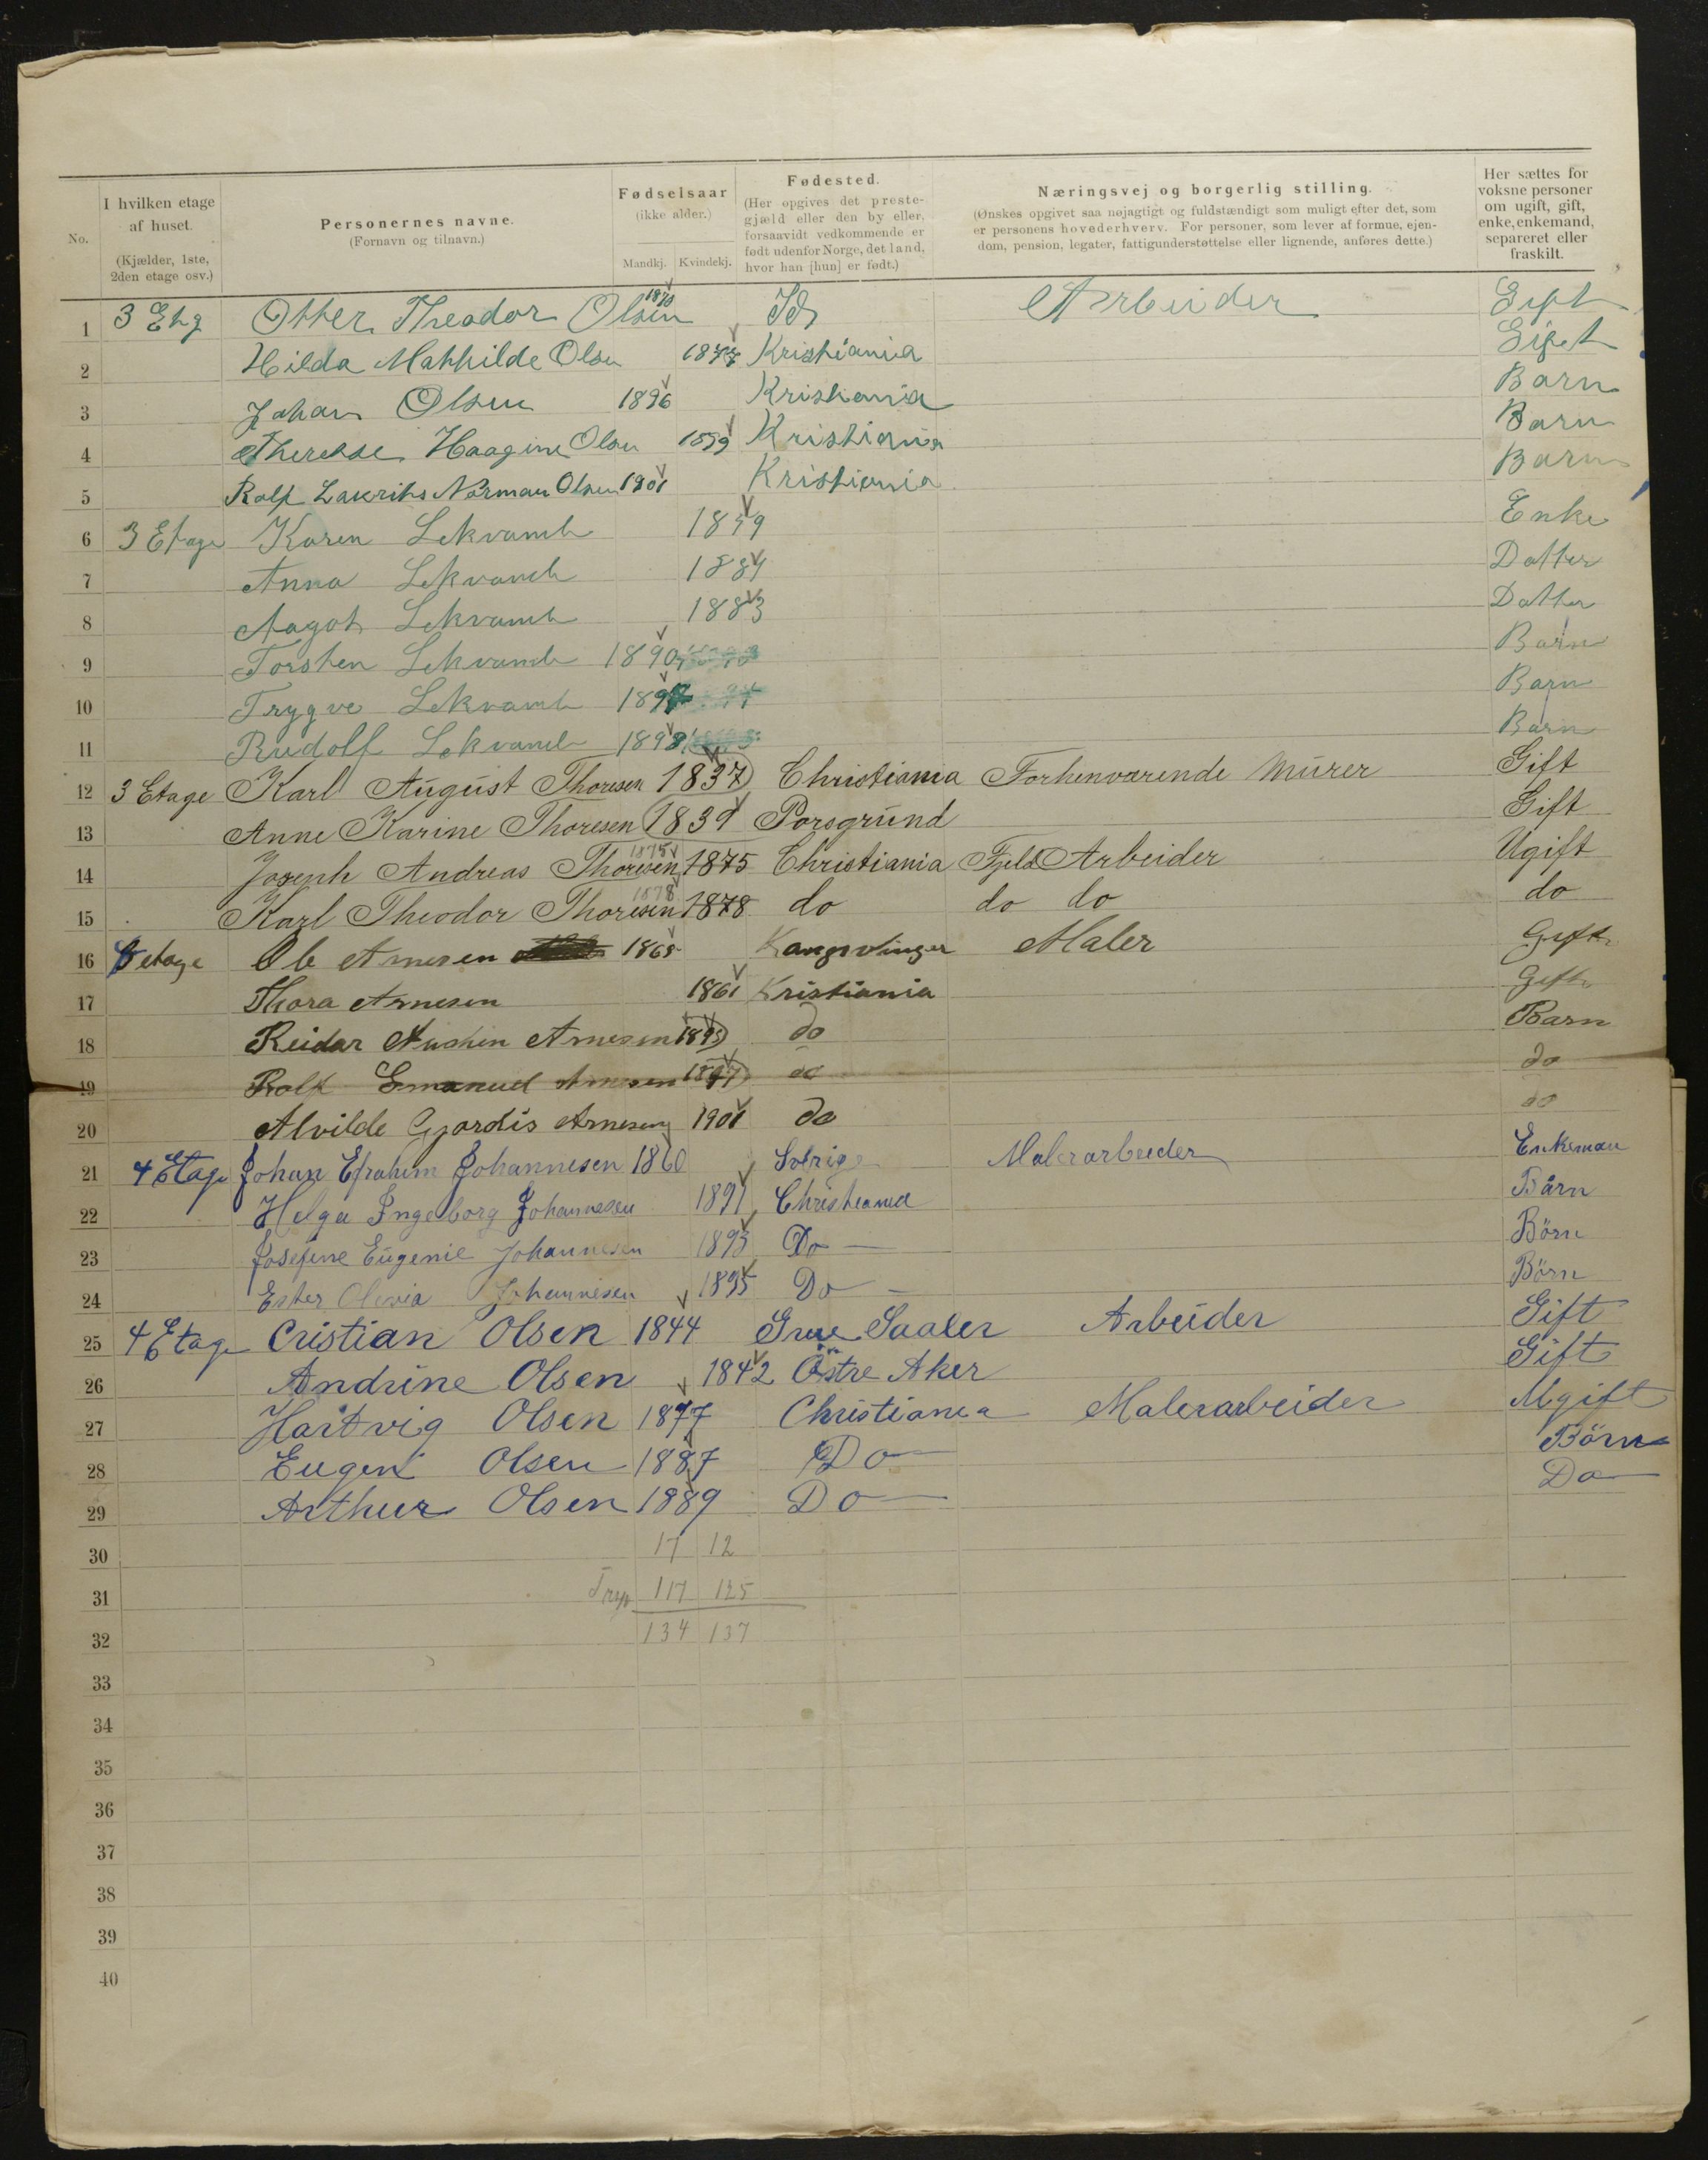 No.
I hvilken etage af huset. (Kjælder, 1ste, 2den etage osv.)
Personernes navne. (Fornavn og tilnavn.)
Fødselsaar (ikke alder.) Mandkj. Kvindekj.
Fødested. (Her opgives det prestegjæld eller den by eller, forsaavidt vedkommende er født udenfor Norge, det land, hvor han [hun] er født.)
Næringsvej og borgerlig stilling. (Ønskes opgivet saa nøjagtigt og fuldstændigt som muligt efter det, som er personens hovederhverv. For personer, som lever af formue, ejendom, pension, legater, fattigunderstøttelse eller lignende, anføres dette.)
Her sættes for voksne personer om ugift, gift, enke, enkemand, separeret eller fraskilt.
1 3 Etg Otter Theodor Olsen Id Arbeider Gift
2 Hilda Mathilde Olsen 1877 Kristiania Gift
3 Johan Olsen 1896 Kristiania Barn
4 Therese Haagine Olsen 1899 Kristiania Barn
5 Rolf Norman Olsen 1901 Kristiania Barn
6 3 Etage Karen Lekvamb 1859 Enke
7 Anna Lekvamb 1884 Datter
8 Aagot Lekvamb 1883 Datter
9 Torsten Lekvamb 1890 Barn
10 Trygve Lekvamb Barn
11 Rudolf Lekvamb 1898 Barn
12 3 Etage Karl August Thoresen 1837 Christiania Forhenværende Murer Gift
13 Anne Karine Thoresen 1839 Porsgrund Gift
14 Joseph Andreas Thoresen 1875 1875 Christiania Fjeld Arbeider Ugift
15 Karl Theodor Thoresen 1878 1878 do do do do
16 etage Ole Arnesen 1865 Kangsvinger Maler Gift
17 Thora Arnesen 1861 Kristiania Gift
18 Reidar Arnesen do Barn
19 Rolf Emanuel Arnesen 1897 do do
20 Alvilde Gjordis Arnesen 1901 do do
21 4 Etage Johan Efrahim Johannesen 1860 Sverige Malerarbeider Enkeman
22 Helga Ingeborg Johannesen 1891 Christiania Bårn
23 Josefine Eugenie Johannesen 1893 Do — Börn
24 Ester Olivia Johannesen 1895 Do — Börn
25 4 Etage Cristian Olsen 1844 Grue Saaler Arbeider Gift
26 Andrine Olsen 1842 Östre Aker Gift
27 Hartvig Olsen 1877 Christiania Malerarbeider Ugift
28 Eugen Olsen 1887 Do — Börn
29 Arthur Olsen 1889 Do — Do —
30 17 12
31 117 125
32 134 137
33
34
35
36
37
38
39
40